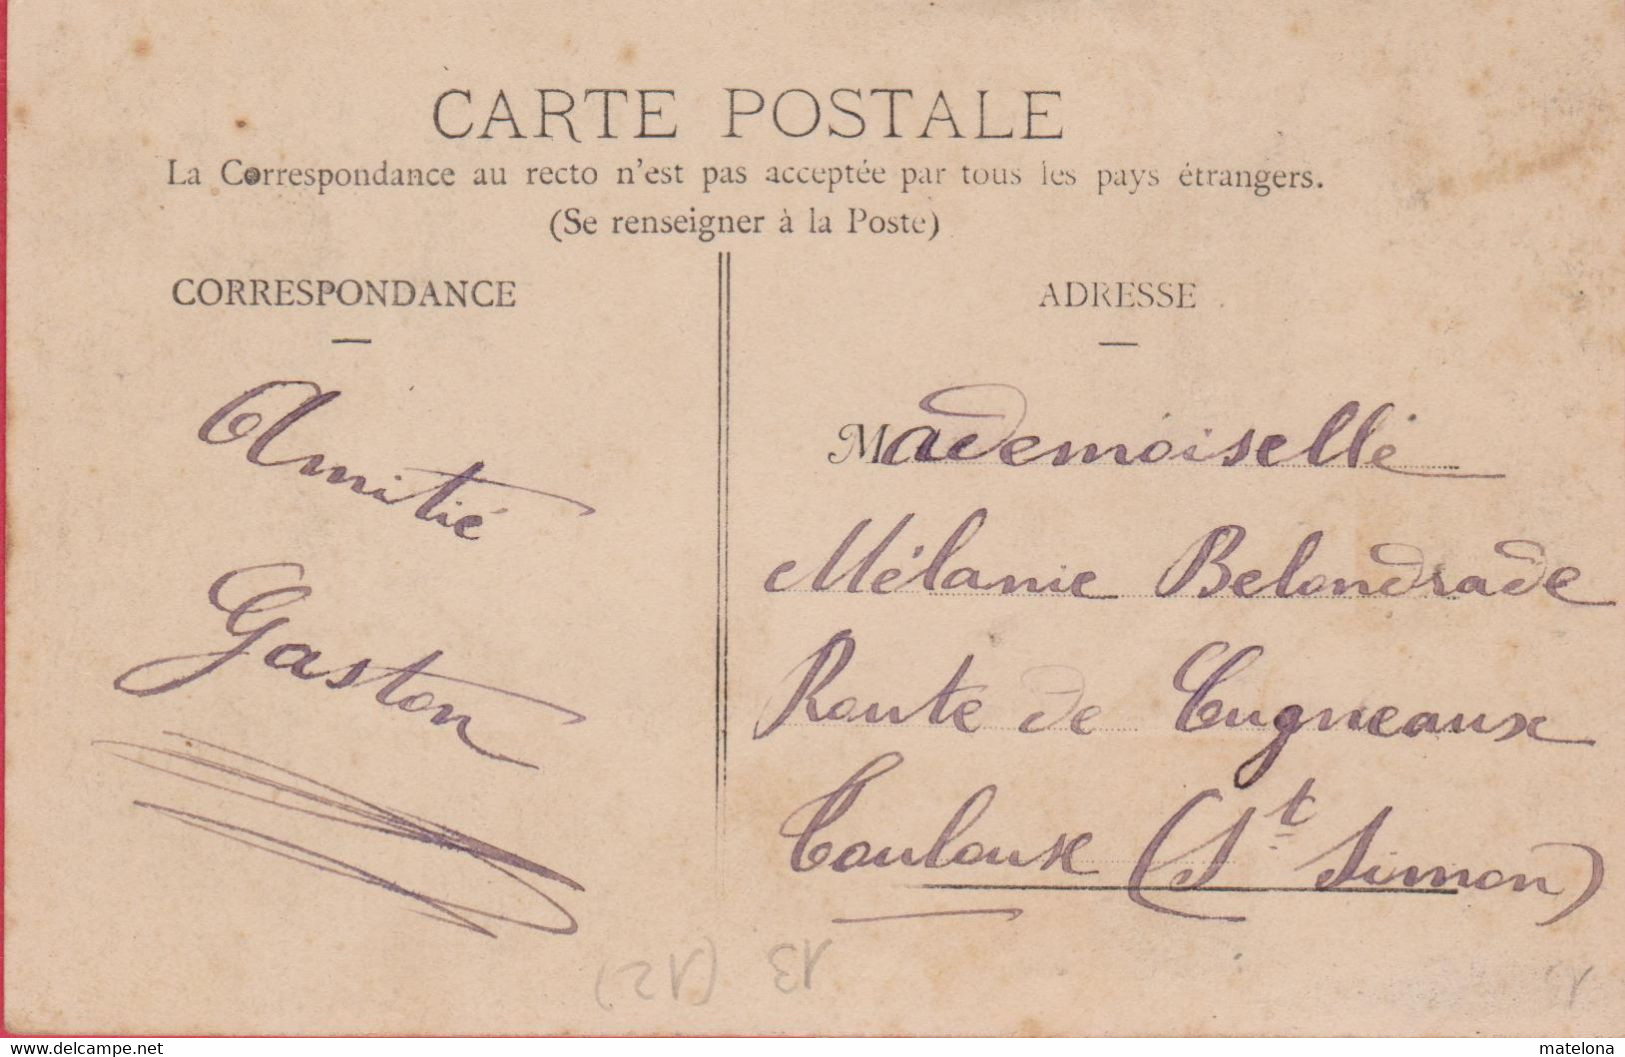 CARTE POSTALE
La Correspondance au recto n'est pas acceptée par tous les pays étrangers.
(Se renseigner à la Poste)
CORRESPONDANCE
Amitié
Gaston
ADRESSE
Mademoiselle
Mélanie Belondrade
Route de Cugneaux
Toulouse (St Simon)
13 (12)
www.delcampe.net
matelona